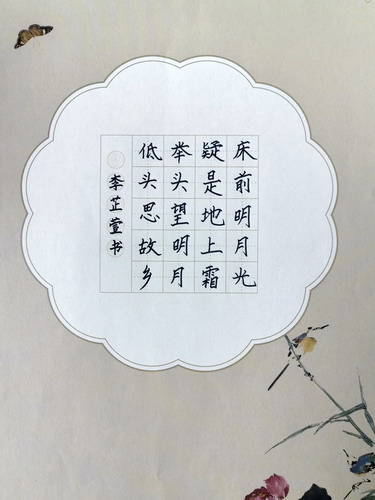 床前明月光
疑是地上霜
举头望明月
低头思故乡
李芷萱书